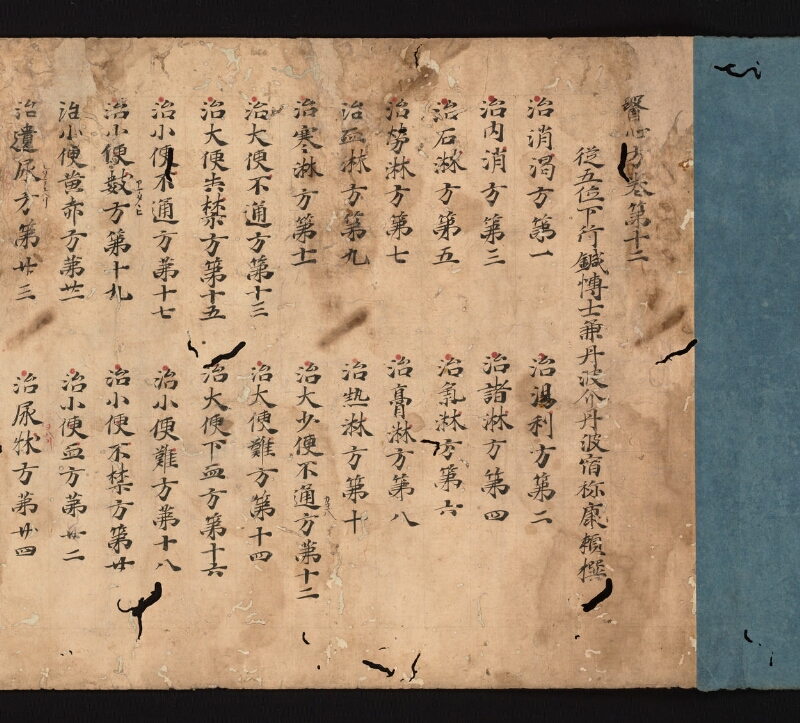 醫心方卷第十二
從五位下行鍼博士兼丹波介丹波宿祢康頼撰
治消渴方第一 治湯利方第二
治內消方第三 治諸淋方第四
治石淋方第五 治氣淋方第六
治勞淋方第七 治膏淋方第八
治血淋方第九 治熱淋方第十
治寒淋方第十一 治大少便不通方第十二
治大便不通方第十三 治大便難方第十四
治大便失禁方第十五 治大便下血方第十六
治小便不通方第十七 治小便難方第十八
治小便數方第十九 治小便不禁方第廿
治小便黄赤方第廿一 治小便血方第廿二
治遺尿方第廿三 治尿牀方第廿四